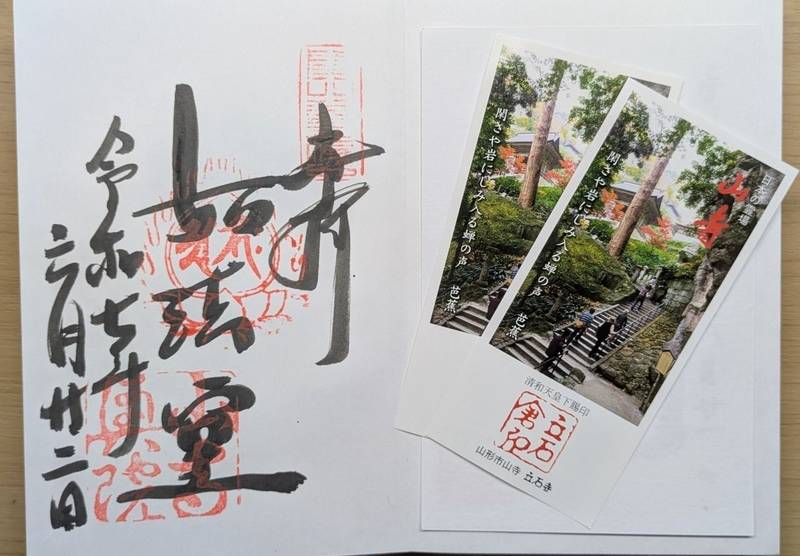 奉拝
如法堂
令和七年
六月廿二日
山寺
奥院
閑さや岩にしみ入る蝉の声 芭蕉
日本の霊場
山寺
閑さや岩にしみ入る蝉の声 芭蕉
清和天皇下賜印
立石
倉印
山形市山寺 立石寺